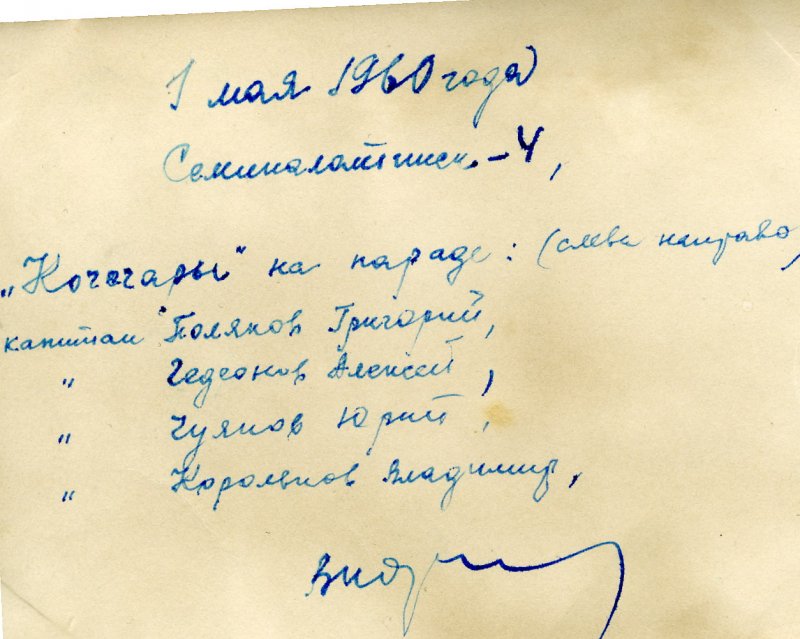 1 мая 1960 года
Семипалатинск-4,
„Кочегары" на параде: (слева направо)
капитан Поляков Григорий,
" Гедеонов Алексей,
" Чуянов Юрий,
" Корольков Владимир,